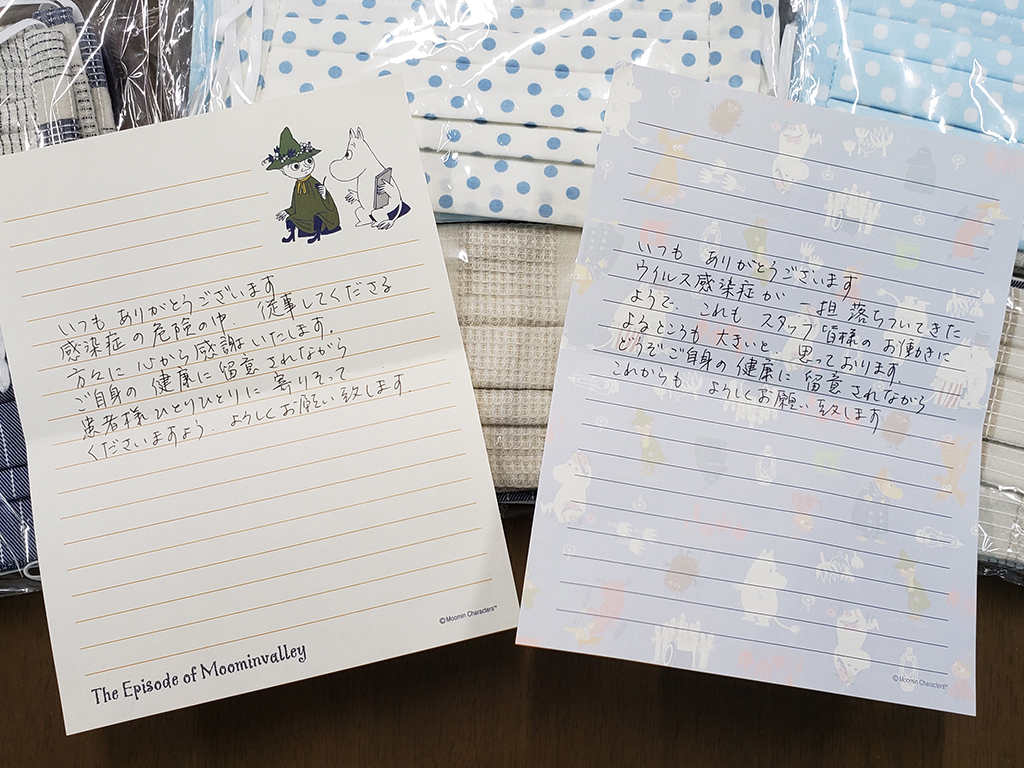 いつも ありがとうございます
感染症の危険の中、従事してくださる
方々に 心から感謝いたします。
ご自身の 健康に 留意されながら
患者様ひとりひとりに 寄りそって
くださいますよう、よろしくお願い致します
© Moomin Characters™
The Episode of Moominvalley
いつも ありがとうございます
ウイルス感染症が 一担 落ちついてきた
ようで、これも スタッフ皆様の お働きに
よるところも 大きいと、思っております。
どうぞご自身の健康に 留意されながら
これからも よろしくお願い致します
© Moomin Characters™